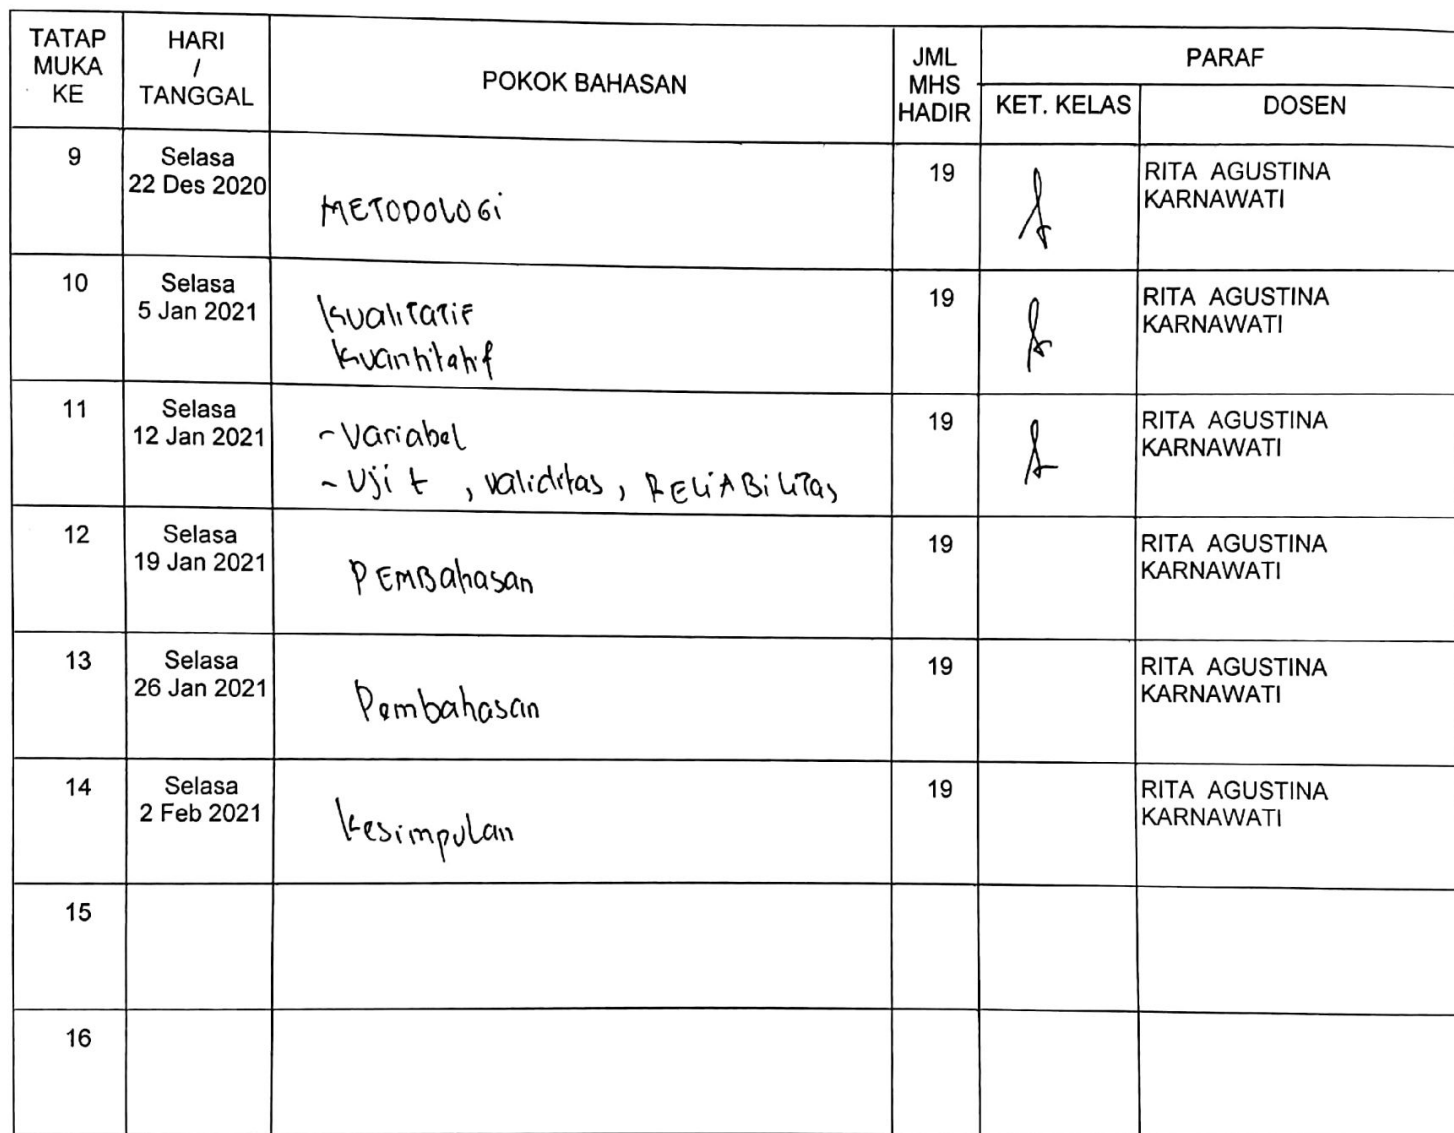 TATAP MUKA KE
HARI / TANGGAL
POKOK BAHASAN
JML MHS HADIR
PARAF
KET. KELAS
DOSEN
9
Selasa
22 Des 2020
METODOLOGi
19
RITA AGUSTINA
KARNAWATI
10
Selasa
5 Jan 2021
kualitatif
kuantitatif
19
RITA AGUSTINA
KARNAWATI
11
Selasa
12 Jan 2021
- Variabel
- Uji t , validitas, RELiABiLiTas
19
RITA AGUSTINA
KARNAWATI
12
Selasa
19 Jan 2021
PEMBahasan
19
RITA AGUSTINA
KARNAWATI
13
Selasa
26 Jan 2021
Pembahasan
19
RITA AGUSTINA
KARNAWATI
14
Selasa
2 Feb 2021
kesimpulan
19
RITA AGUSTINA
KARNAWATI
15
16